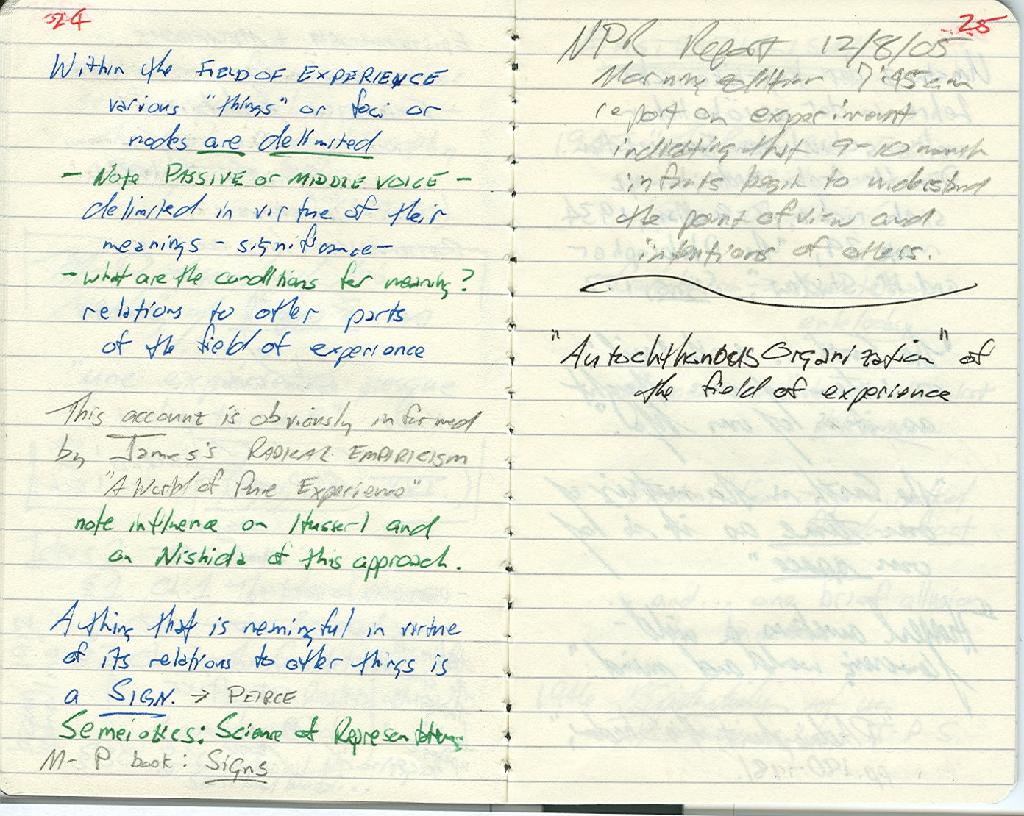 24
Within the FIELD OF EXPERIENCE
various "things" or foci or
nodes are delimited
- Note PASSIVE or MIDDLE VOICE -
delimited in virtue of their
meanings - significance -
- what are the conditions for meaning?
relations to other parts
of the field of experience
This account is obviously informed
by James's RADICAL EMPIRICISM
"A World of Pure Experience"
note influence on Husserl and
on Nishida of this approach.
A thing that is meaningful in virtue
of its relations to other things is
a SIGN. → PEIRCE
Semeiotics: Science of Representation
M-P book: Signs
25
NPR Report 12/8/05
Morning edition 7:45am
report on experiment
indicating that 9-10 month
infants begin to understand
the point of view and
intentions of others.
"Autochthonous Organization" of
the field of experience